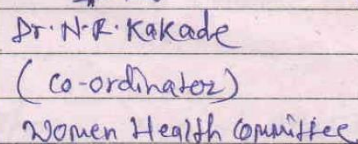 Dr. N. R. Kakade
(Co-ordinator)
Women Health Committee